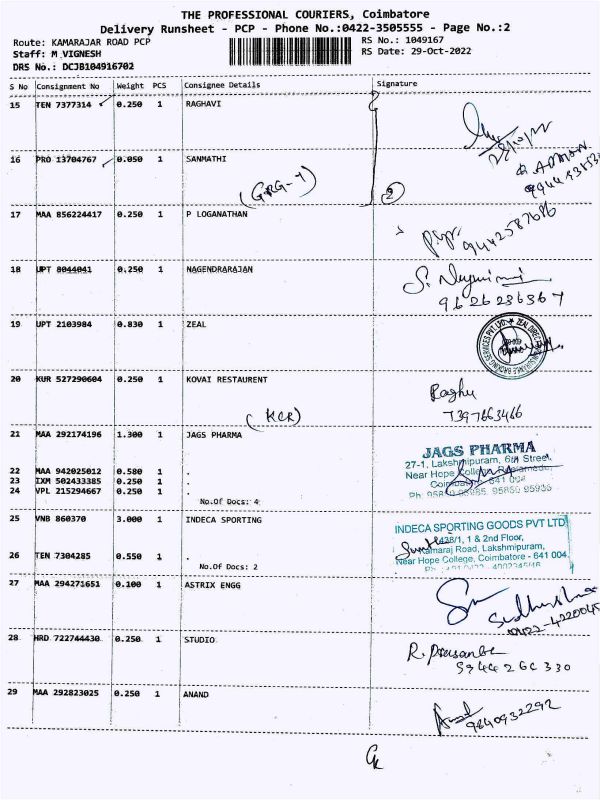 THE PROFESSIONAL COURIERS, Coimbatore
Delivery Runsheet - PCP - Phone No.:0422-3505555 - Page No.:2
Route: KAMARAJAR ROAD PCP
RS No.: 1049167
Staff: M VIGNESH
RS Date: 29-Oct-2022
DRS No.: DCJB104916702
S No Consignment No Weight PCS Consignee Details Signature
15 TEN 7377314 0.250 1 RAGHAVI
16 PRO 13704767 0.050 1 SANMATHI
(GRG-4)
2
17 MAA 856224417 0.250 1 P LOGANATHAN
9442587686
18 UPT 8044041 0.250 1 NAGENDRARAJAN
9626286367
19 UPT 2103984 0.830 1 ZEAL
20 KUR 527290604 0.250 1 KOVAI RESTAURENT
Raghu
(KCR)
7397663466
21 MAA 292174196 1.300 1 JAGS PHARMA
JAGS PHARMA
27-1, Lakshmipuram, 6th Street
Near Hope College,
22 MAA 942025012 0.580 1 .
23 IXM 502433385 0.250 1 .
24 VPL 215294667 0.250 1 .
No.Of Docs: 4
25 VNB 860370 3.000 1 INDECA SPORTING
INDECA SPORTING GOODS PVT LTD
1 & 2nd Floor,
Kamaraj Road, Lakshmipuram,
Near Hope College, Coimbatore - 641 004
26 TEN 7304285 0.550 1 .
No.Of Docs: 2
27 MAA 294271651 0.100 1 ASTRIX ENGG
0422-4220045
28 HRD 722744430 0.250 1 STUDIO
R. Prasanth
29 MAA 292823025 0.250 1 ANAND
Anand
9840932292